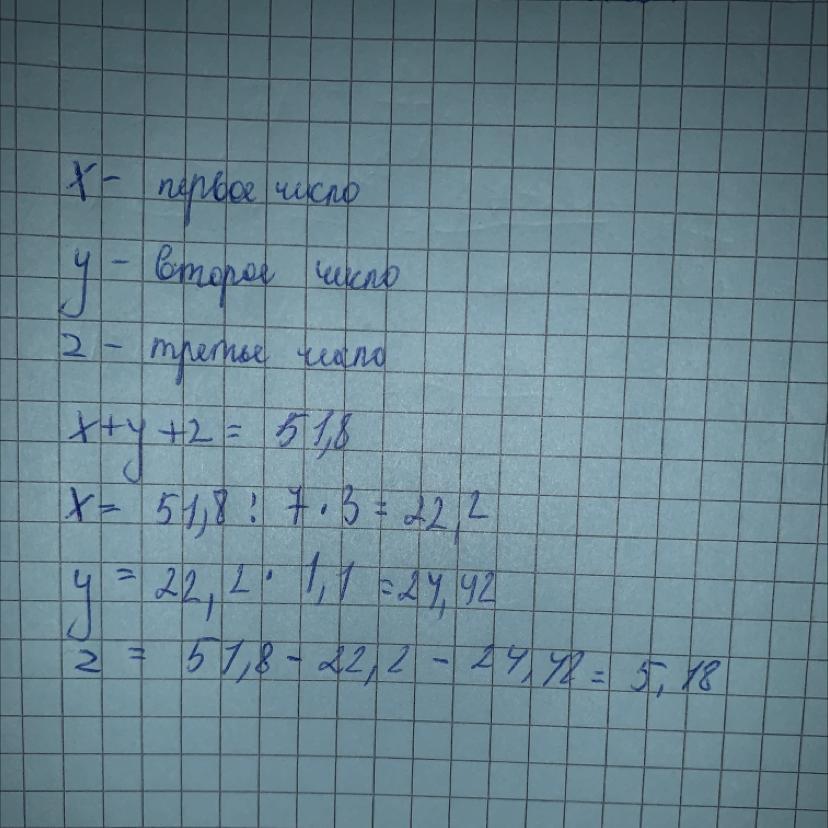 x - первое число
y - второе число
z - третье число
x + y + z = 51,8
x = 51,8 : 7 · 3 = 22,2
y = 22,2 · 1,1 = 24,42
z = 51,8 - 22,2 - 24,42 = 5,18